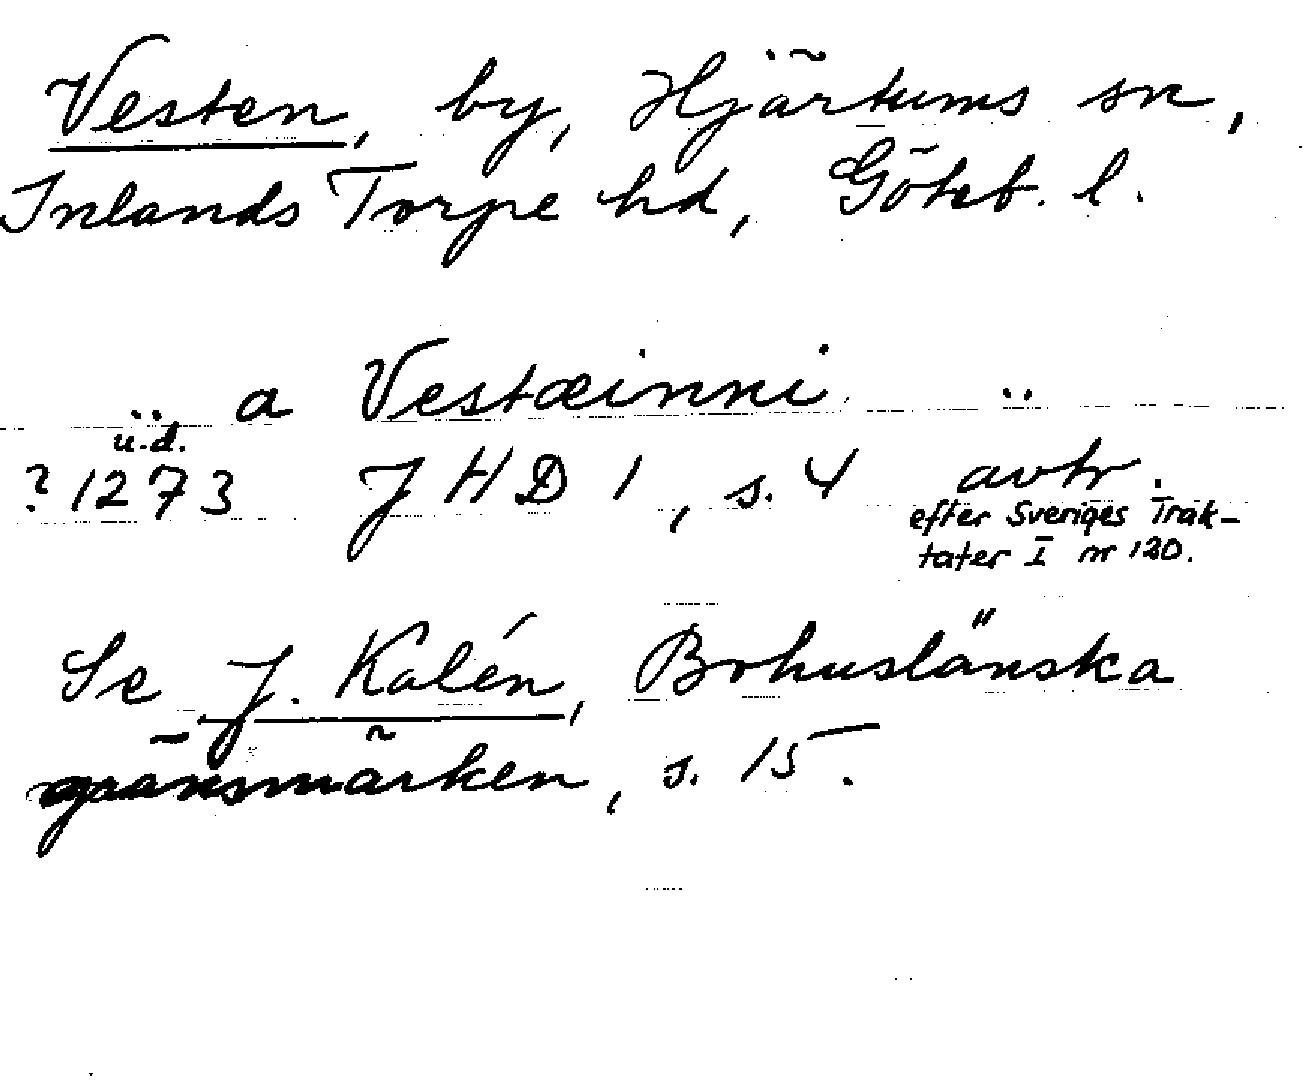 Vesten, by, Hjärtums sn,
Inlands Torpe hd, Göteb. l.
.. a Vestæinni ..
u.d.
? 1273 JHD 1, s. 4 avtr.
efter Sveriges Trak-
tater I nr 120.
Se J. Kalén, Bohuslänska
gränsmärken, s. 15.